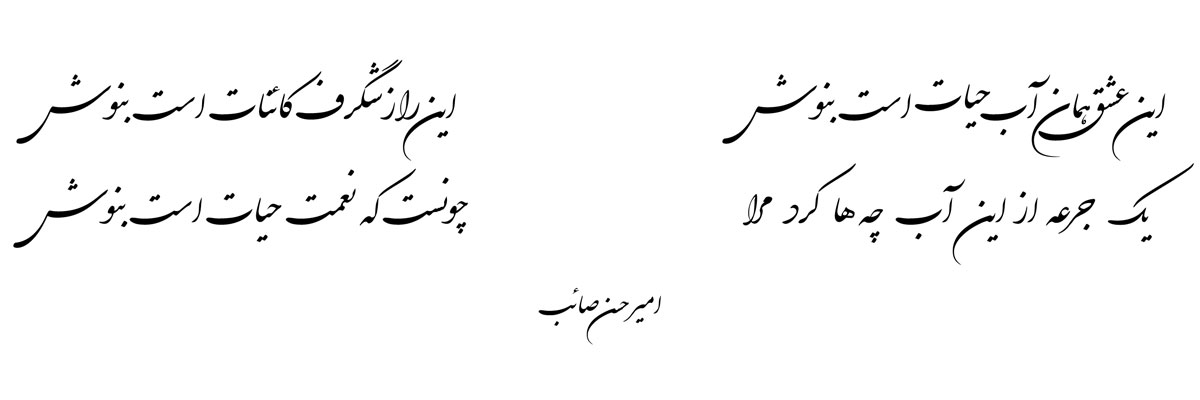 این عشق همان آب حیات است بنوش این راز شگرف کائنات است بنوش
یک جرعه از این آب چه ها کرد مرا چونست که نعمت حیات است بنوش
امیرحسن صائب